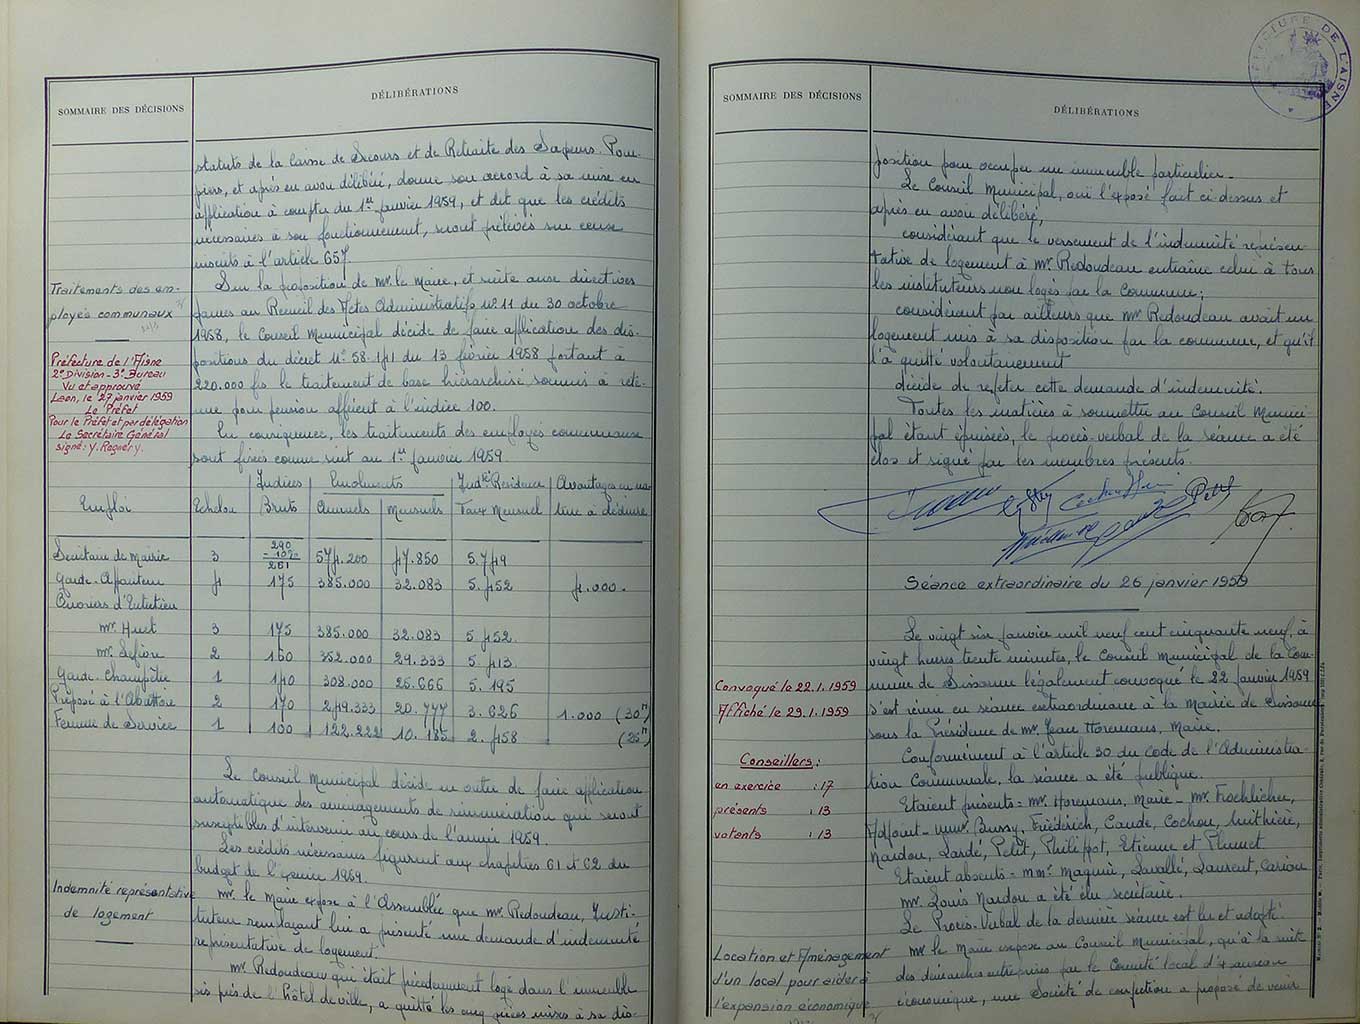 SOMMAIRE DES DÉCISIONS
DÉLIBÉRATIONS
statuts de la Caisse de Secours et de Retraite des Sapeurs-Pom-
piers, et après en avoir délibéré, donne son accord à sa mise en
application à compter du 1er janvier 1959, et dit que les crédits
nécessaires à son fonctionnement, seront prélevés sur ceux
inscrits à l'article 657.
Traitements des em-
ployés communaux
Préfecture de l'Aisne
2e Division - 3e Bureau
Vu et approuvé
Laon, le 27 janvier 1959
Le Préfet
Pour le Préfet et par délégation
Le Secrétaire Général
signé: Y. Regnery.
Sur la proposition de Mr. le Maire, et suite aux directives
parues au Recueil des Actes Administratifs N° 11 du 30 octobre
1958, le Conseil Municipal décide de faire application des dis-
positions du décret N° 58-141 du 13 février 1958 portant à
220.000 frs le traitement de base hiérarchisé soumis à rete-
nue pour pension afférent à l'indice 100.
En conséquence, les traitements des employés communaux
sont fixés comme suit au 1er janvier 1959.
Emploi Echelon Indices Bruts Emoluments Annuels Mensuels Indté Résidence Taux Mensuel Avantages en na-
ture à déduire
Secrétaire de Mairie 3 290 - 10% 261 574.200 47.850 5.749
Garde-Appariteur 4 175 385.000 32.083 5.452 4.000.
Ouvriers d'Entretien
Mr. Huet 3 175 385.000 32.083 5.452
Mr. Lefèvre 2 160 352.000 29.333 5.413
Garde-Champêtre 1 140 308.000 25.666 5.195
Préposé à l'Abattoir 2 170 249.333 20.777 3.626 1.000 (30H)
Femme de Service 1 100 122.222 10.185 2.458 (25H)
Le Conseil Municipal décide en outre de faire application
automatique des aménagements de rémunération qui seront
susceptibles d'intervenir au cours de l'année 1959.
Les crédits nécessaires figurent aux chapitres 61 et 62 du
budget de l'exercice 1959.
Indemnité représentative
de logement
Mr. le Maire expose à l'Assemblée que Mr. Redoudeau, Insti-
tuteur remplaçant lui a présenté une demande d'indemnité
représentative de logement.
Mr Redoudeau qui était précédemment logé dans l'immeuble
sis près de l'Hôtel de ville, a quitté les cinq pièces mises à sa dis-
SOMMAIRE DES DÉCISIONS
DÉLIBÉRATIONS
PRÉFECTURE DE L'AISNE
position pour occuper un immeuble particulier.
Le Conseil Municipal, ouï l'exposé fait ci-dessus et
après en avoir délibéré,
considérant que le versement de l'indemnité représen-
tative de logement à Mr. Redoudeau entraîne celui à tous
les instituteurs non logés par la Commune;
considérant par ailleurs que Mr. Redoudeau avait un
logement mis à sa disposition par la commune, et qu'il
l'a quitté volontairement
décide de rejeter cette demande d'indemnité.
Toutes les matières à soumettre au Conseil Munici-
pal étant épuisées, le procès-verbal de la séance a été
clos et signé par les membres présents.
Petit
Séance extraordinaire du 26 janvier 1959
Convoqué le 22.1.1959
Affiché le 29.1.1959
Conseillers:
en exercice : 17
présents : 13
votants : 13
Le vingt six janvier mil neuf cent cinquante neuf, à
vingt heures trente minutes, le Conseil Municipal de la Com-
mune de Sissonne légalement convoqué le 22 janvier 1959
s'est réuni en séance extraordinaire à la Mairie de Sissonne
sous la Présidence de Mr. Jean Horemans, Maire.
Conformément à l'article 30 du Code de l'Administra-
tion Communale, la séance a été publique.
Etaient présents = Mr. Horemans, Maire - Mr. Froehlicher,
Adjoint - MMrs. Bussy, Friédérich, Caude, Cochou,
Nardou, Lardé, Petit, Philippot, Etienne et Plumet.
Etaient absents = MMrs. Lavallé, Laurent, Cariou
Mr. Louis Nardou a été élu secrétaire.
Le Procès-Verbal de la dernière séance est lu et adopté.
Location et Aménagement
d'un local pour aider à
l'expansion économique
Mr le Maire expose au Conseil Municipal, qu'à la suite
des démarches entreprises par le Comité local d'Expansion
économique, une Société de confection a proposé de venir